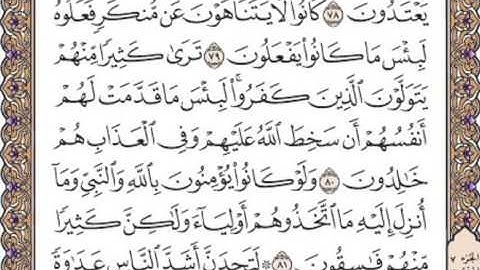 يَعْتَدُونَ ٧٨ كَانُوا۟ لَا يَتَنَاهَوْنَ عَن مُّنكَرٍ فَعَلُوهُ
لَبِئْسَ مَا كَانُوا۟ يَفْعَلُونَ ٧٩ تَرَىٰ كَثِيرًا مِّنْهُمْ
يَتَوَلَّوْنَ ٱلَّذِينَ كَفَرُوا۟ ۚ لَبِئْسَ مَا قَدَّمَتْ لَهُمْ
أَنفُسُهُمْ أَن سَخِطَ ٱللَّهُ عَلَيْهِمْ وَفِى ٱلْعَذَابِ هُمْ
خَٰلِدُونَ ٨٠ وَلَوْ كَانُوا۟ يُؤْمِنُونَ بِٱللَّهِ وَٱلنَّبِىِّ وَمَآ
أُنزِلَ إِلَيْهِ مَا ٱتَّخَذُوهُمْ أَوْلِيَآءَ وَلَٰكِنَّ كَثِيرًا
مِّنْهُمْ فَٰسِقُونَ ٨١ ۞ لَتَجِدَنَّ أَشَدَّ ٱلنَّاسِ عَدَٰوَةً
الجزء ٧